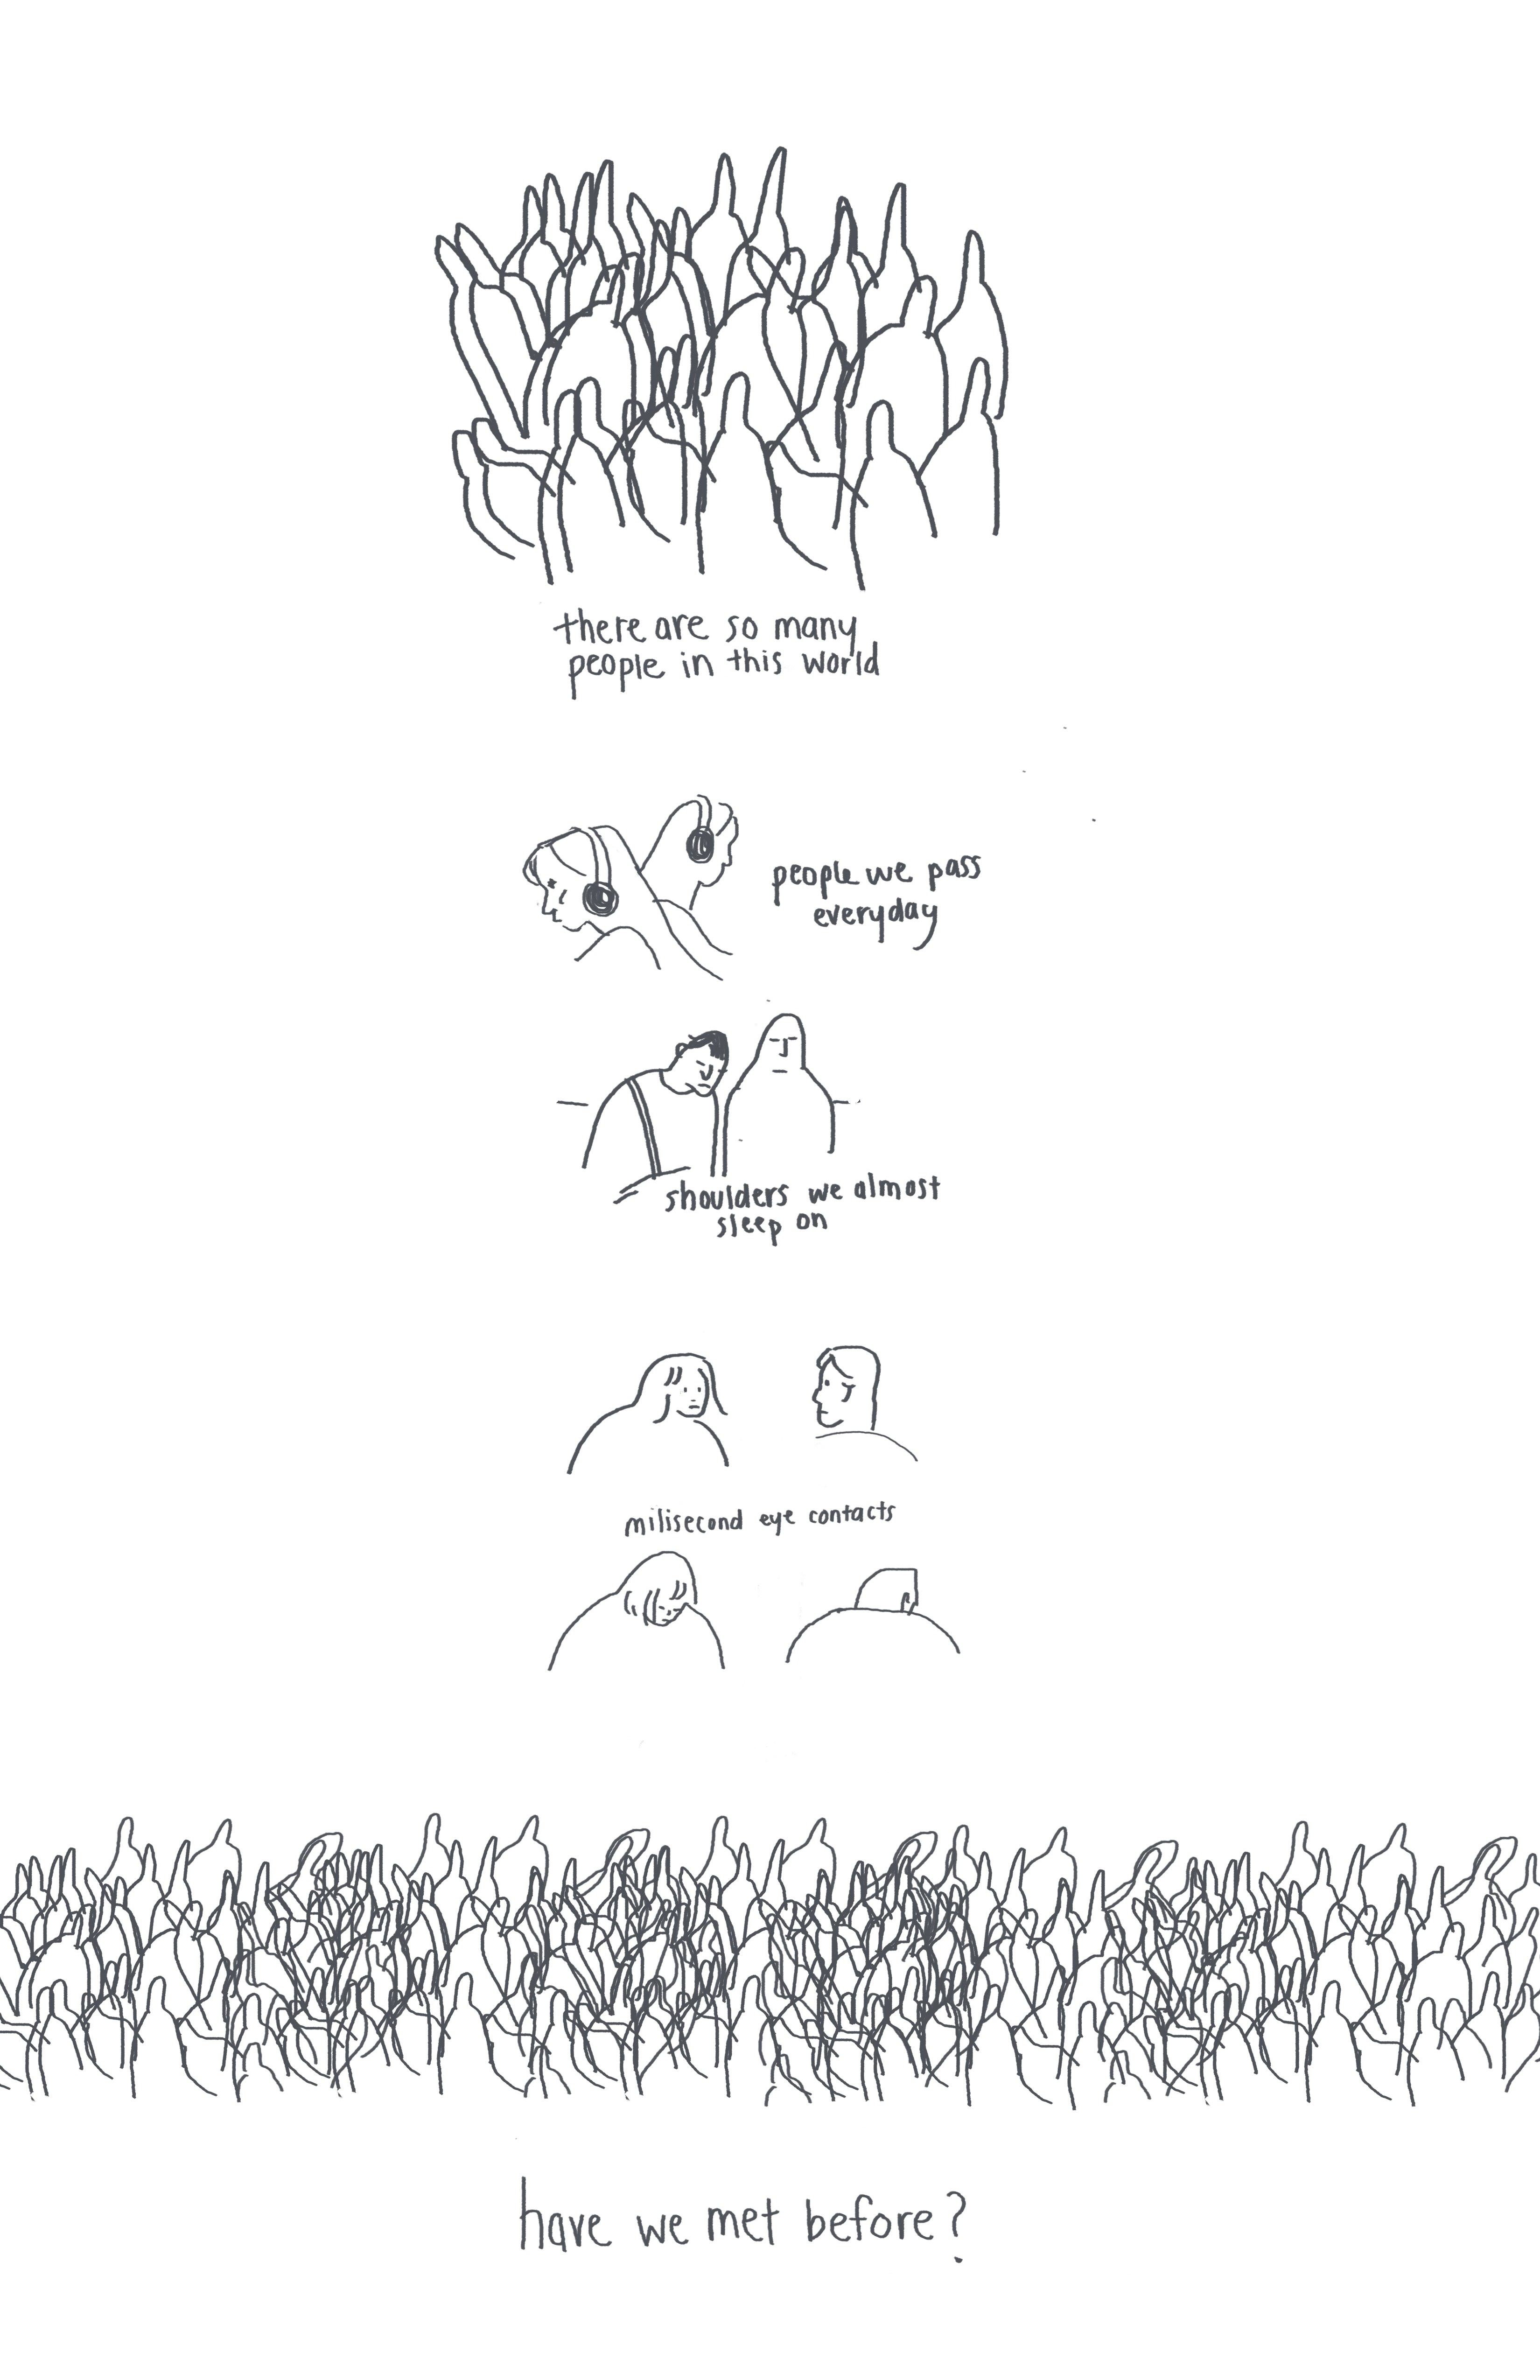 there are so many
people in this world
people we pass
everyday
shoulders we almost
sleep on
milisecond eye contacts
have we met before?